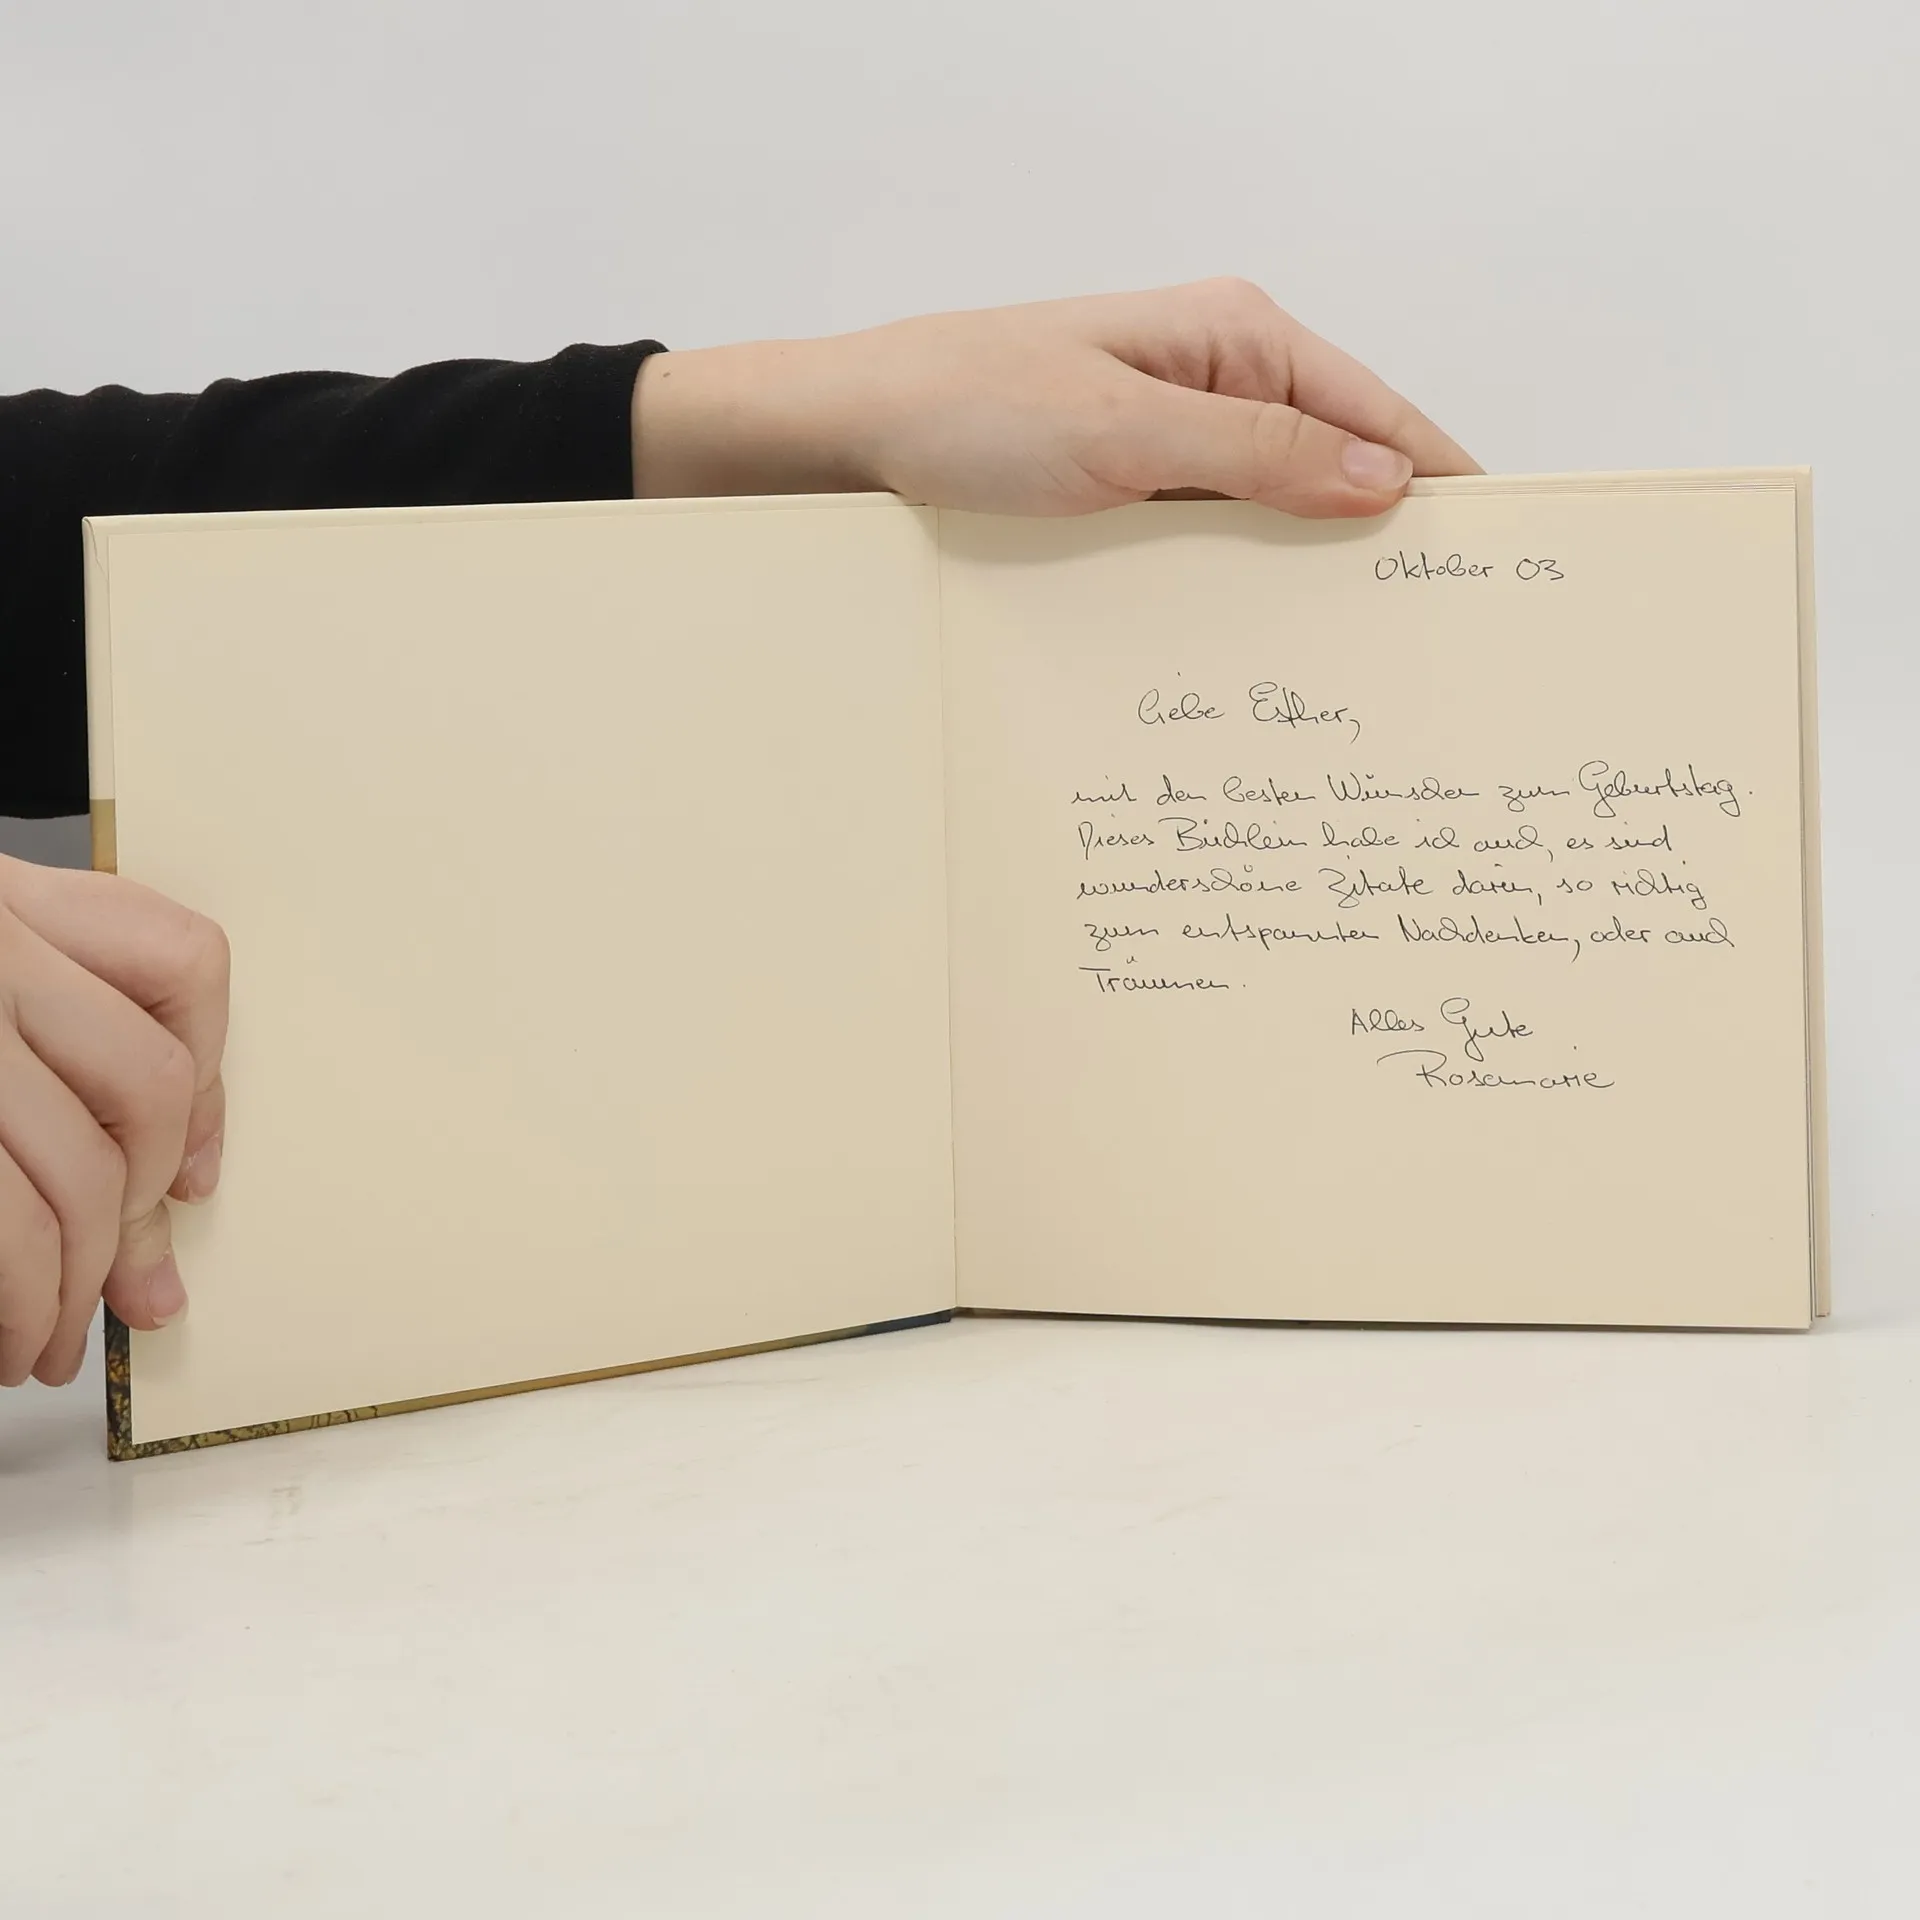 Oktober 03
Liebe Esther,
mit den besten Wünschen zum Geburtstag.
Dieses Büchlein habe ich auch, es sind
wunderschöne Zitate darin, so richtig
zum entspannten Nachdenken, oder auch
Träumen.
Alles Gute
Rosemarie